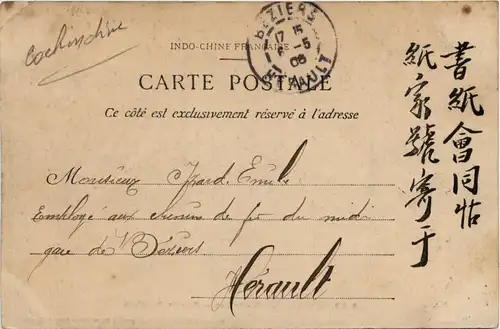 Cochinchine
INDO-CHINE FRANÇAISE
BEZIERS
17 15
5
06
HERAULT
CARTE POSTALE
Ce côté est exclusivement réservé à l'adresse
Monsieur Izard Emile
Employé aux chemins de fer du midi
gare de Béziers
Hérault
書紙會同怗
紙家號寄于